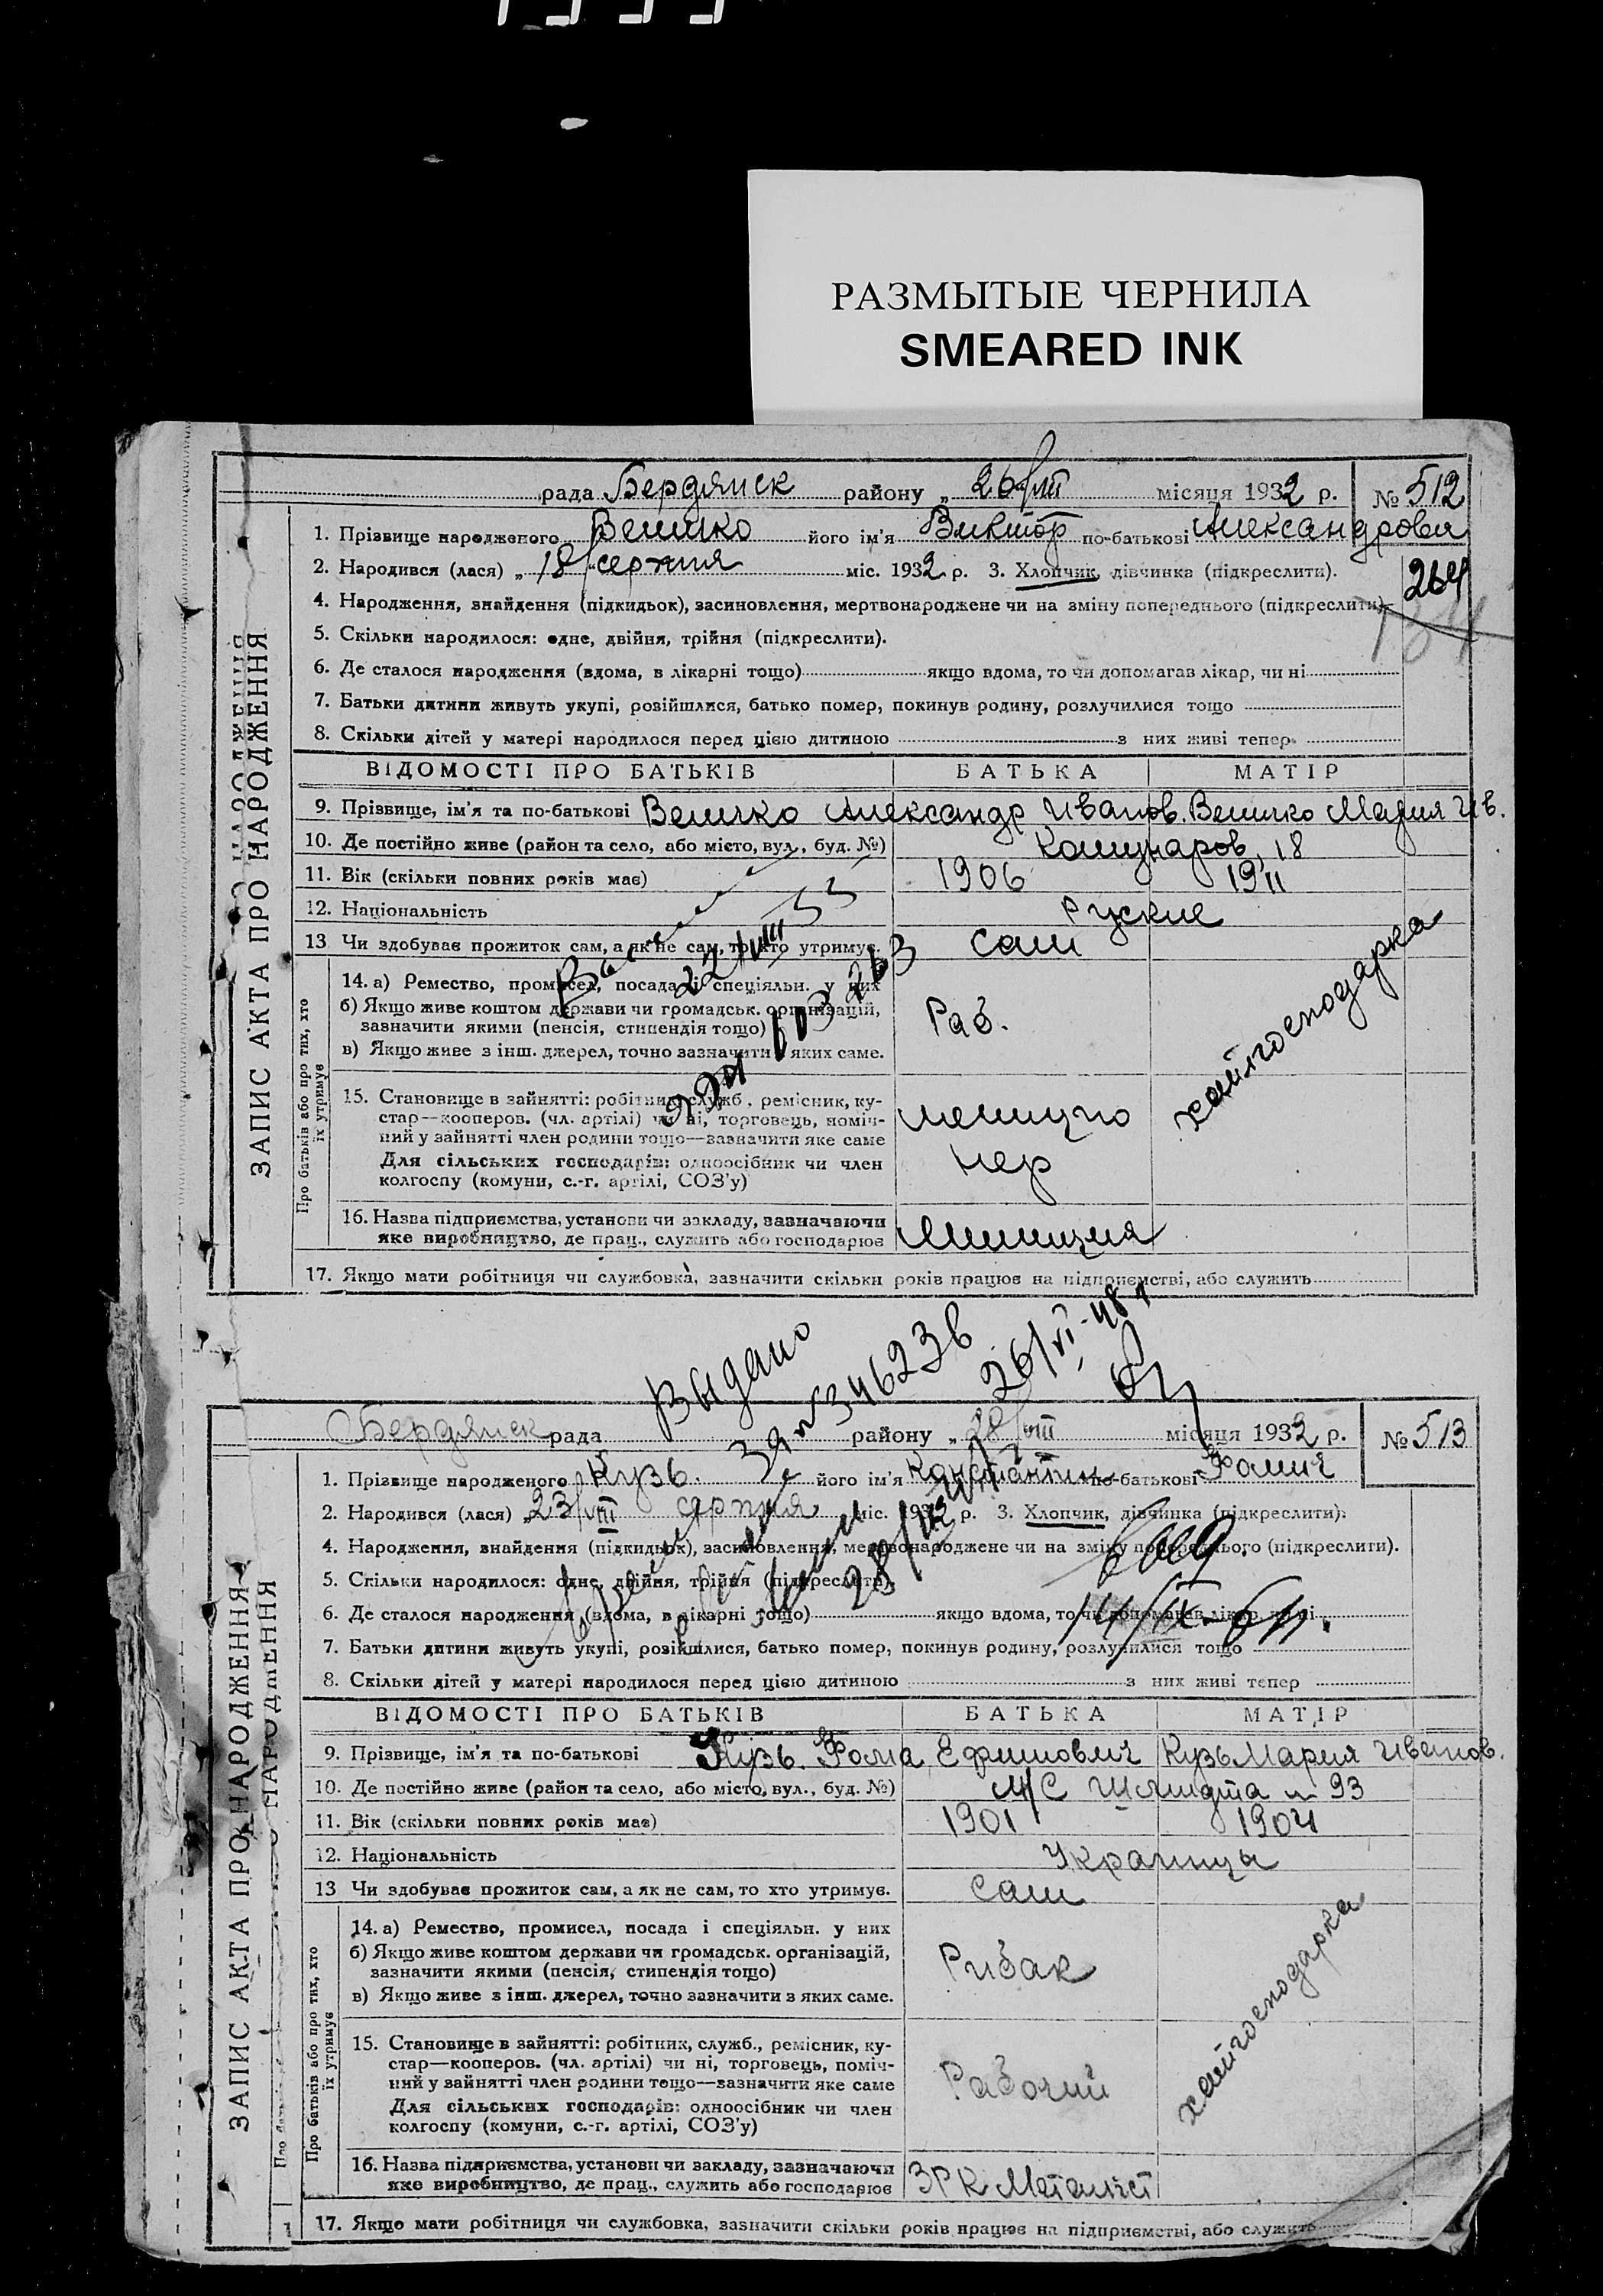 РАЗМЫТЫЕ ЧЕРНИЛА
SMEARED INK
рада Бердянск району „ 26/VIII місяця 1932 р. № 512
1. Прізвище народженого Величко його ім'я Виктор по-батькові Александрови
2. Народився (лася) „ 18/серпня міс. 1932 р. 3. Хлопчик, дівчинка (підкреслити).
264
4. Народження, знайдення (підкидьок), засиновлення, мертвонароджене чи на зміну попереднього (підкреслити).
5. Скільки народилося: одне, двійня, трійня (підкреслити).
6. Де сталося народження (вдома, в лікарні тощо) якщо вдома, то чи допомагав лікар, чи ні
7. Батьки дитини живуть укупі, розійшлися, батько помер, покинув родину, розлучилися тощо
8. Скільки дітей у матері народилося перед цією дитиною з них живі тепер
ЗАПИС АКТА ПРО НАРОДЖЕННЯ
ВІДОМОСТІ ПРО БАТЬКІВ БАТЬКА МАТІР
9. Прізвище, ім'я та по-батькові Величко Александр Иванов. Величко Мария Ив.
10. Де постійно живе (район та село, або місто, вул., буд. №) Комунаров, 18
11. Вік (скільки повних років має) 1906 1911
12. Національність Руские
13 Чи здобуває прожиток сам, а як не сам, то хто утримує. Сам
22/VIII 33
Про батьків або про тих, хто їх утримує
14. а) Ремество, промисел, посада і спеціяльн. у них
б) Якщо живе коштом держави чи громадськ. організацій,
зазначити якими (пенсія, стипендія тощо) Раб.
в) Якщо живе з інш. джерел, точно зазначити з яких саме.
хатнгосподарка
15. Становище в зайнятті: робітник, служб., ремісник, ку-
стар—кооперов. (чл. артілі) чи ні, торговець, поміч-
ний у зайнятті член родини тощо—зазначити яке саме
Для сільських господарів: одноосібник чи член
колгоспу (комуни, с.-г. артілі, СОЗ'у)
16. Назва підприємства, установи чи закладу, зазначаючи
яке виробництво, де прац., служить або господарює Милиция
17. Якщо мати робітниця чи службовка, зазначити скільки років працює на підприємстві, або служить
Выдано
№346236
26/VI-48 г
Бердянск рада району „ 28/VIII місяця 1932 р. № 513
1. Прізвище народженого Кузь. його ім'я Константин по-батькові Фомич
2. Народився (лася) „ 23/VIII серпня міс. 1932 р. 3. Хлопчик, дівчинка (підкреслити).
4. Народження, знайдення (підкидьок), засиновлення, мертвонароджене чи на зміну попереднього (підкреслити).
5. Скільки народилося: одне, двійня, трійня (підкреслити).
6. Де сталося народження (вдома, в лікарні тощо) якщо вдома, то чи допомагав лікар, чи ні
14/IX-61.
7. Батьки дитини живуть укупі, розійшлися, батько помер, покинув родину, розлучилися тощо
8. Скільки дітей у матері народилося перед цією дитиною з них живі тепер
ЗАПИС АКТА ПРО НАРОДЖЕННЯ
ВІДОМОСТІ ПРО БАТЬКІВ БАТЬКА МАТІР
9. Прізвище, ім'я та по-батькові Кузь. Фома Ефимович Кузь Мария Иванов.
10. Де постійно живе (район та село, або місто, вул., буд. №) М/С Шмидта № 93
11. Вік (скільки повних років має) 1901 1904
12. Національність Украинцы
13 Чи здобуває прожиток сам, а як не сам, то хто утримує. Сам
Про батьків або про тих, хто їх утримує
14. а) Ремество, промисел, посада і спеціяльн. у них
б) Якщо живе коштом держави чи громадськ. організацій,
зазначити якими (пенсія, стипендія тощо) Рибак
в) Якщо живе з інш. джерел, точно зазначити з яких саме.
хатнгосподарка
15. Становище в зайнятті: робітник, служб., ремісник, ку-
стар—кооперов. (чл. артілі) чи ні, торговець, поміч-
ний у зайнятті член родини тощо—зазначити яке саме Рабочий
Для сільських господарів: одноосібник чи член
колгоспу (комуни, с.-г. артілі, СОЗ'у)
16. Назва підприємства, установи чи закладу, зазначаючи
яке виробництво, де прац., служить або господарює ЗРК Металіст
17. Якщо мати робітниця чи службовка, зазначити скільки років працює на підприємстві, або служить